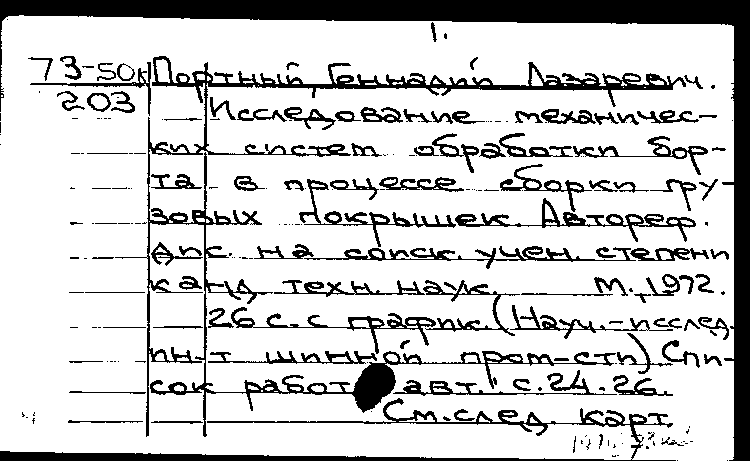 1.
73-50к Портный, Геннадий Лазаревич.
203 Исследование механичес-
ких систем обработки бор-
та в процессе сборки гру-
зовых покрышек. Автореф.
дис. на соиск. учен. степени
канд. техн. наук. М., 1972.
26 с. с график. (Науч.-исслед.
ин-т шинной пром-сти) Спи-
сок работ авт.: с. 24-26.
См. след. карт.